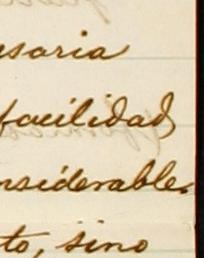 soria
facilidad
nsiderable.
to, sino